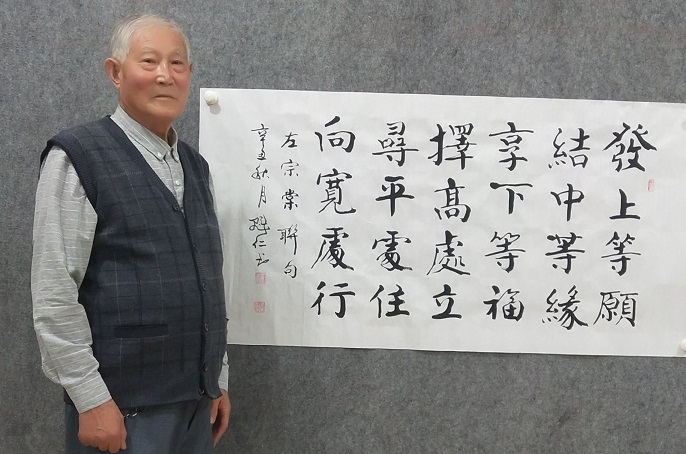 發上等願
結中等緣
享下等福
擇高處立
尋平處住
向寬處行
左宗棠聯句
辛丑秋月仁书